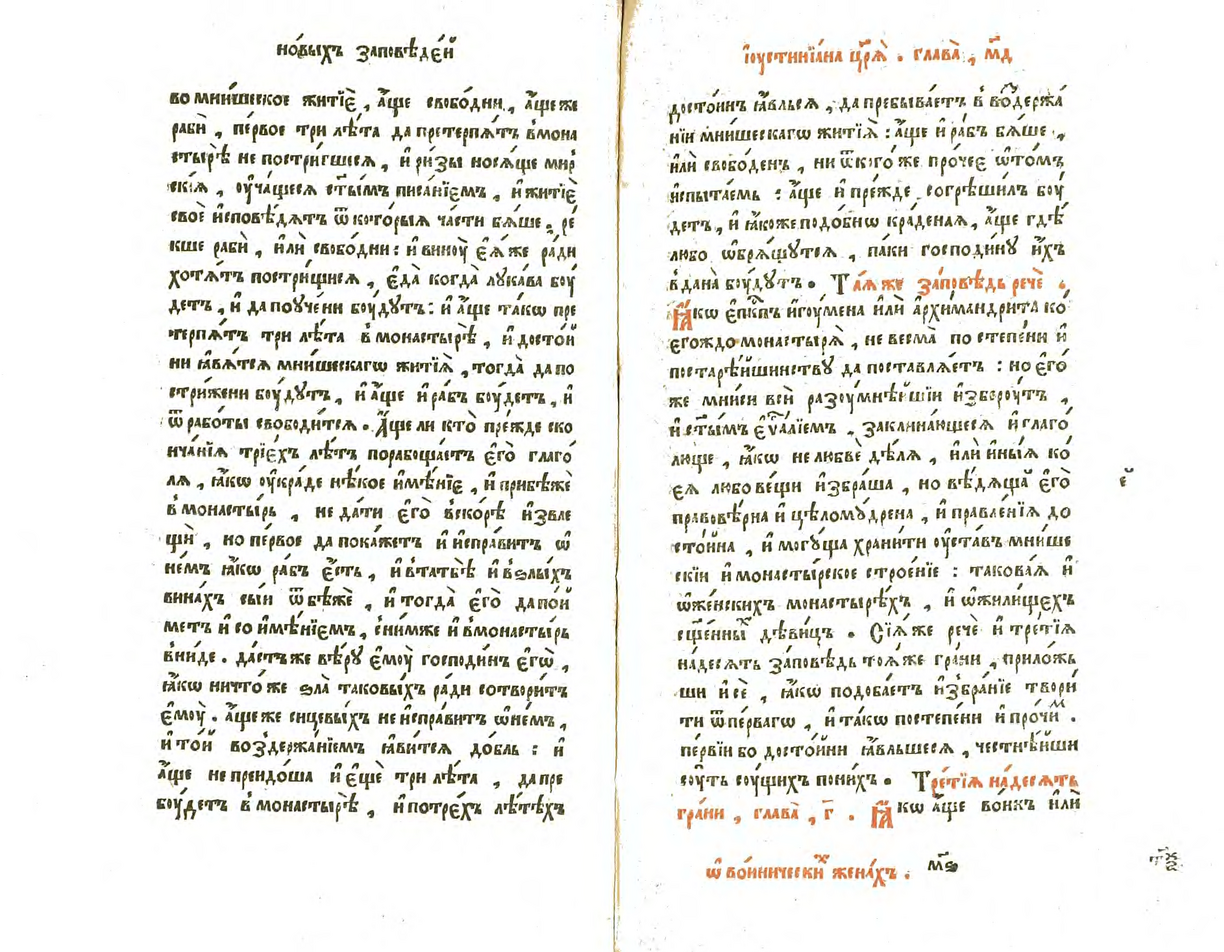 но́выхъ заповѣде́й
во мни́шеское житїѐ , а҆́ще свобо́дни , а҆́ще же
рабѝ , пе́рвое три лѣ́та да претерпѧ́тъ в̾мона
стырѣ̀ не постри́гшесѧ , и҆ ри́зы носѧ́ще мир
скі́ѧ , оу҆ча́щесѧ ст҃ы́мъ писа́нїемъ , и҆ житїѐ
своѐ и҆сповѣ́дѧтъ ѿ кото́рыѧ ча́сти бѧ́ше , ре́
кше рабѝ , и҆лѝ свобо́дни : и҆ виноу̀ є҆ѧ́же ра́ди
хотѧ́тъ постри́щисѧ , є҆да̀ когда̀ лꙋка́ва боу́
детъ , и҆ да поуче́ни боу́дутъ : и҆ а҆́ще та́кѡ пре
терпѧ́тъ три лѣ́та в̾ монастырѣ̀ , и҆ досто́й
ни ꙗ҆вѧ́тсѧ мни́шескагѡ житїѧ̀ , тогда̀ да по
стри́жени боу́дутъ , и҆ а҆́ще и҆ ра́бъ боу́детъ , и҆
ѿ рабо́ты свободи́тсѧ . А҆́ще ли кто̀ пре́жде ско
нча́нїѧ трїе́хъ лѣ́тъ порабоща́етъ є҆го̀ глаго́
лѧ , ꙗ҆́кѡ оу҆кра́де нѣ́кое и҆мѣ́нїе , и҆ прибѣ́же
в̾ монасты́рь , не да́ти є҆го̀ вско́рѣ и҆звле
щѝ , но пе́рвое да пока́жетъ и҆ и҆спра́витъ ѡ҆
не́мъ ꙗ҆́кѡ ра́бъ є҆́сть , и҆ в̾татьбѣ̀ и҆ в̾ѕлы́хъ
вина́хъ сы́и ѿбѣжѐ , и҆ тогда̀ є҆го̀ да пои́
метъ и҆ со и҆мѣ́нїемъ , с̾ни́мже и҆ в̾монасты́рь
вни́де . да́стъ же вѣ́рꙋ є҆моу̀ господи́нъ є҆гѡ̀ ,
ꙗ҆́кѡ ничто́же ѕла̀ таковы́хъ ра́ди сотвори́тъ
є҆моу̀ . а҆́ще же сицевы́хъ не и҆спра́витъ ѡ҆не́мъ ,
и҆ то́й воздержа́нїемъ ꙗ҆ви́тсѧ до́бль : и҆
а҆́ще не преидо́ша и҆ є҆щѐ три лѣ́та , да пре
боу́детъ в̾ монастырѣ̀ , и҆ потре́хъ лѣ́тѣхъ
і҆оустинїа́на цр҃ѧ̀ . глава̀ , м҃д
досто́инъ ꙗ҆́вльсѧ , да пребыва́етъ в̾ во́здержа́
нїи мни́шескагѡ житїѧ̀ : а҆́ще и҆ ра́бъ бѧ́ше ,
и҆лѝ свобо́денъ , ни ѿкого́ же про́чее ѡ҆то́мъ
и҆спыта́емь : а҆́ще и҆ пре́жде согрѣши́лъ боу́
детъ , и҆ ꙗ҆́коже подо́бнѡ кра́денаѧ , а҆́ще гдѣ̀
любо ѡ҆брѧ́щутсѧ , па́ки господи́нꙋ и҆́хъ
в̾дана̀ боу́дутъ . Та́ѧ же за́повѣдь речѐ .
Ꙗ҆́кѡ є҆пк҃пъ и҆гоу́мена и҆лѝ а҆рхимандри́та ко́
є҆гождо монастырѧ̀ , не весма̀ по степе́ни и҆
по старѣ́йшинствꙋ да поставлѧ́етъ : но є҆го́
же мни́си всѝ разоумнѣ́йшїи и҆збероу́тъ ,
и҆ ст҃ы́мъ є҆ѵⷢ҇а́лїемъ , заклина́ющесѧ и҆ глаго́
люще , ꙗ҆́кѡ не любвѐ дѣ́лѧ , и҆лѝ и҆ны́ѧ ко́
єѧ любо ве́щи и҆збра́ша , но вѣ́дѧща є҆го̀
правовѣ́рна и҆ цѣломꙋ́дрена , и҆ правле́нїѧ до
сто́йна , и҆ могꙋ́ща храни́ти оу҆ста́въ мни́ше
скїи и҆ монасты́рское строе́нїе : такова́ѧ и҆
ѡ҆же́нскихъ монастырѣ́хъ , и҆ ѡ҆жили́щехъ
сщ҃е́нныⷯ дѣви́цъ . Сїѧ́ же речѐ и҆ тре́тїѧ
на́десѧть за́повѣдь тоѧ́же гра́ни , прило́жь
ши и҆ сѐ , ꙗ҆́кѡ подоба́етъ и҆збра́нїе твори́
ти ѿ пе́рвагѡ , и҆ та́кѡ постепе́ни и҆ про́чиⷨ .
пе́рвїи бо досто́йни ꙗ҆́вльшеся , честнѣ́йши
соу́ть соу́щихъ пони́хъ . Тре́тїѧ на́десѧть
гра́ни , глава̀ , г҃ . Ꙗ҆́кѡ а҆́ще во́инъ и҆лѝ
е҃
ѡ҆ во́йническиⷯ жена́хъ . м҃ѕ